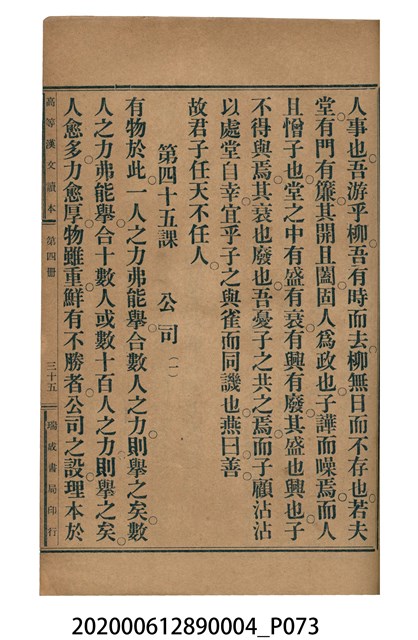 人事也吾游乎柳吾有時而去柳無日而不存也若夫
堂有門有簾其開且闔固人為政也子譁而噪焉而人
且憎子也堂之中有盛有衰有興有廢其盛也興也子
不得與焉其衰也廢也吾憂子之共之焉而子顧沾沾
以處堂自幸宜乎子之與雀而同譏也燕曰善
故君子任天不任人
第四十五課 公司 (一)
有物於此一人之力弗能舉合數人之力則舉之矣數
人之力弗能舉合十數人或數十百人之力則舉之矣
人愈多力愈厚物雖重鮮有不勝者公司之設理本於
高等漢文讀本 第四冊 三十五 瑞成書局印行
202000612890004_P073